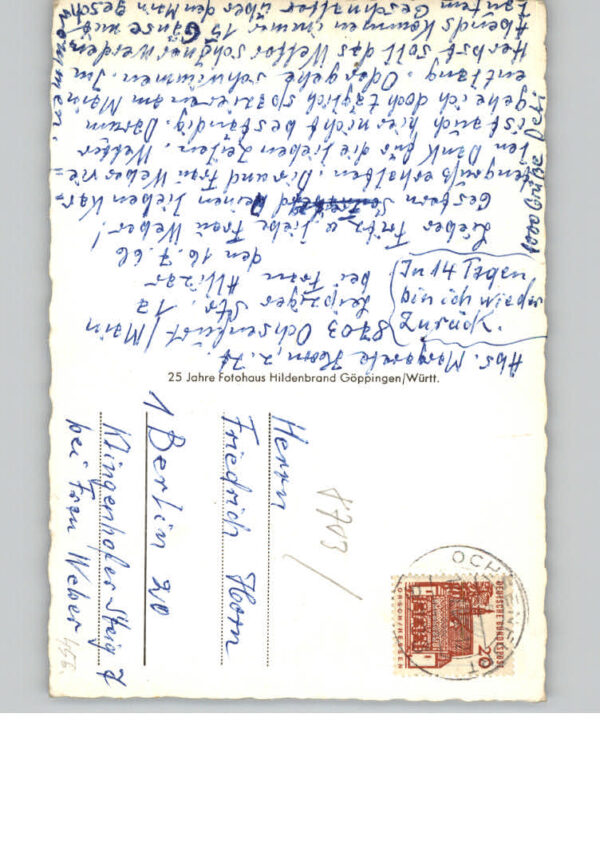 Abs. Margarete Horn, z. Zt.
8703 Ochsenfurt/Main
Leipziger Str. 12
bei Frau
den 16.7.66
Lieber Fritz u. liebe Frau Weber!
Gestern Deinen lieben Kar-
tengruß erhalten. Dir und Frau Weber vie-
len Dank für die lieben Zeilen. Wetter
ist auch hier nicht beständig. Darum
gehe ich doch täglich spazieren am Main
entlang. Oder gehe schwimmen. Im
Herbst soll das Wetter schöner werden.
Abends kommen immer 15 Gänse mit
lautem Geschnatter über den Main gesch-
wommen.
Grüße Deli
Zurück
bin ich
wieder in
14 Tagen
25 Jahre Fotohaus Hildenbrand Göppingen/Württ.
Herrn
Friedrich Horn
1 Berlin 20
Klingenhofer Steig 7
bei Frau Weber
8703
OCHSENFURT
DEUTSCHE BUNDESPOST
20
LORSCH/HESSEN